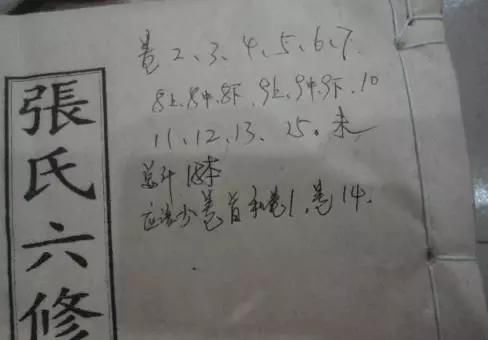 張氏六修
卷2、3、4、5、6、7、
8上、8中、8下、9上、9中、9下、10
11、12、13、15。末
总计18本
应该少卷首和卷1、卷14.